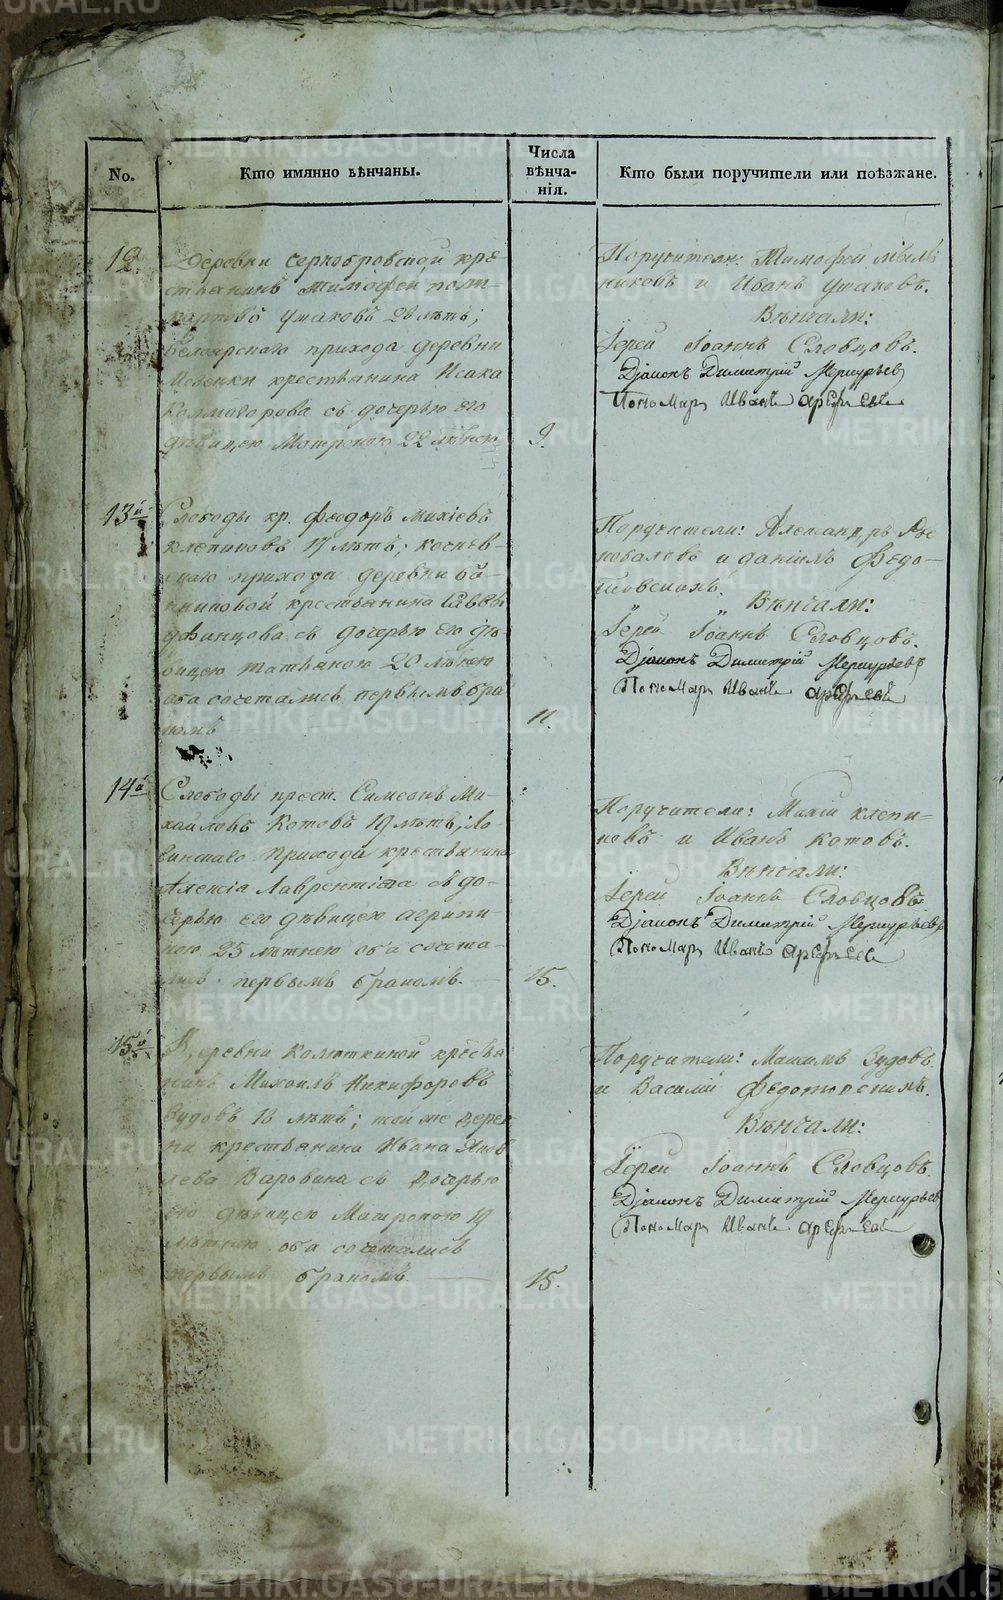 No.
Кто имянно вѣнчаны.
Числа
вѣнча-
нія.
Кто были поручители или поѣзжане.
12
Деревни Чернобровской кре-
стьянинъ Тимофей Поли-
карповъ Ушаковъ 28 лѣтъ;
Белоярскаго прихода деревни
крестьянина Исака
Колмогорова съ дочерью его
дѣвицею Матреною 22 лѣтнею
9.
Поручители: Тимофей Мыль
никовъ и Иванъ Ушаковъ.
Вѣнчали:
Іерей Іоаннъ Словцовъ.
Діаконъ Димитрій Меркурьевъ
Пономарь Иванъ
13й
Слободы кр. Феодоръ Михіевъ
Клепиковъ 17 лѣтъ; Кочнев-
скаго прихода деревни Бѣ-
крестьянина Саввы
съ дочерью его дѣ-
вицею Татьяною 20 лѣтнею
оба сочетались первымъ бра
комъ
11.
Поручители: Александръ Ко
новаловъ и Даніилъ Федо-
товскихъ.
Вѣнчали:
Іерей Іоаннъ Словцовъ.
Діаконъ Димитрій Меркурьевъ
Пономарь Иванъ
14й
Слободы крест. Симеонъ Ми-
хайловъ Котовъ 19 лѣтъ; Ло-
гиновскаго прихода крестьянина
Алексія Лаврентіева съ до-
черью его дѣвицею Агрипи-
ною 25 лѣтнею оба сочета-
лись первымъ бракомъ.
15.
Поручители: Михій Клепи-
ковъ и Иванъ Котовъ.
Вѣнчали:
Іерей Іоаннъ Словцовъ.
Діаконъ Димитрій Меркурьевъ
Пономарь Иванъ
15й
Деревни Колюткиной кресть
нинъ Михаилъ Никифоровъ
Зудовъ 18 лѣтъ; той же дерев
ни крестьянина Ивана Яков
лева Варовина съ дочерью
его дѣвицею Матреною 19
лѣтнею оба сочетались
первымъ бракомъ.
15.
Поручители: Максимъ Зудовъ
и Василій Федоторскихъ.
Вѣнчали:
Іерей Іоаннъ Словцовъ.
Діаконъ Димитрій Меркурьевъ
Пономарь Иванъ
METRIKI.GASO-URAL.RU